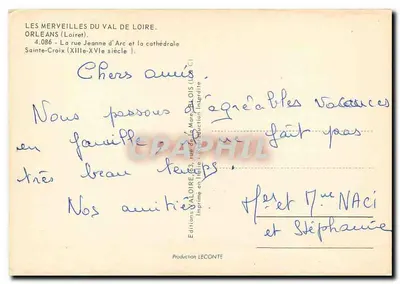 LES MERVEILLES DU VAL DE LOIRE.
ORLEANS (Loiret).
4.086 - La rue Jeanne d'Arc et la cathédrale
Sainte-Croix (XIIIe-XVIe siècle).
Chers amis,
Nous passons d'agréables vacances
en famille il ne fait pas
très beau temps.
Nos amitiés.
Mr et Mme NACI
et Stéphanie
Editions VALOIRE
Imprimé en Italie
Reproduction Interdite
Production LECONTE
CPARAPHIL